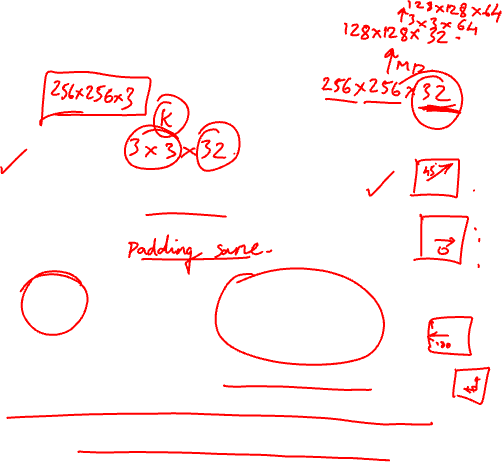 128×128×64
↑3×3×64
128×128×32
↑MP
256×256×32
256×256×3
K
3×3×32
45°
Padding same.
0